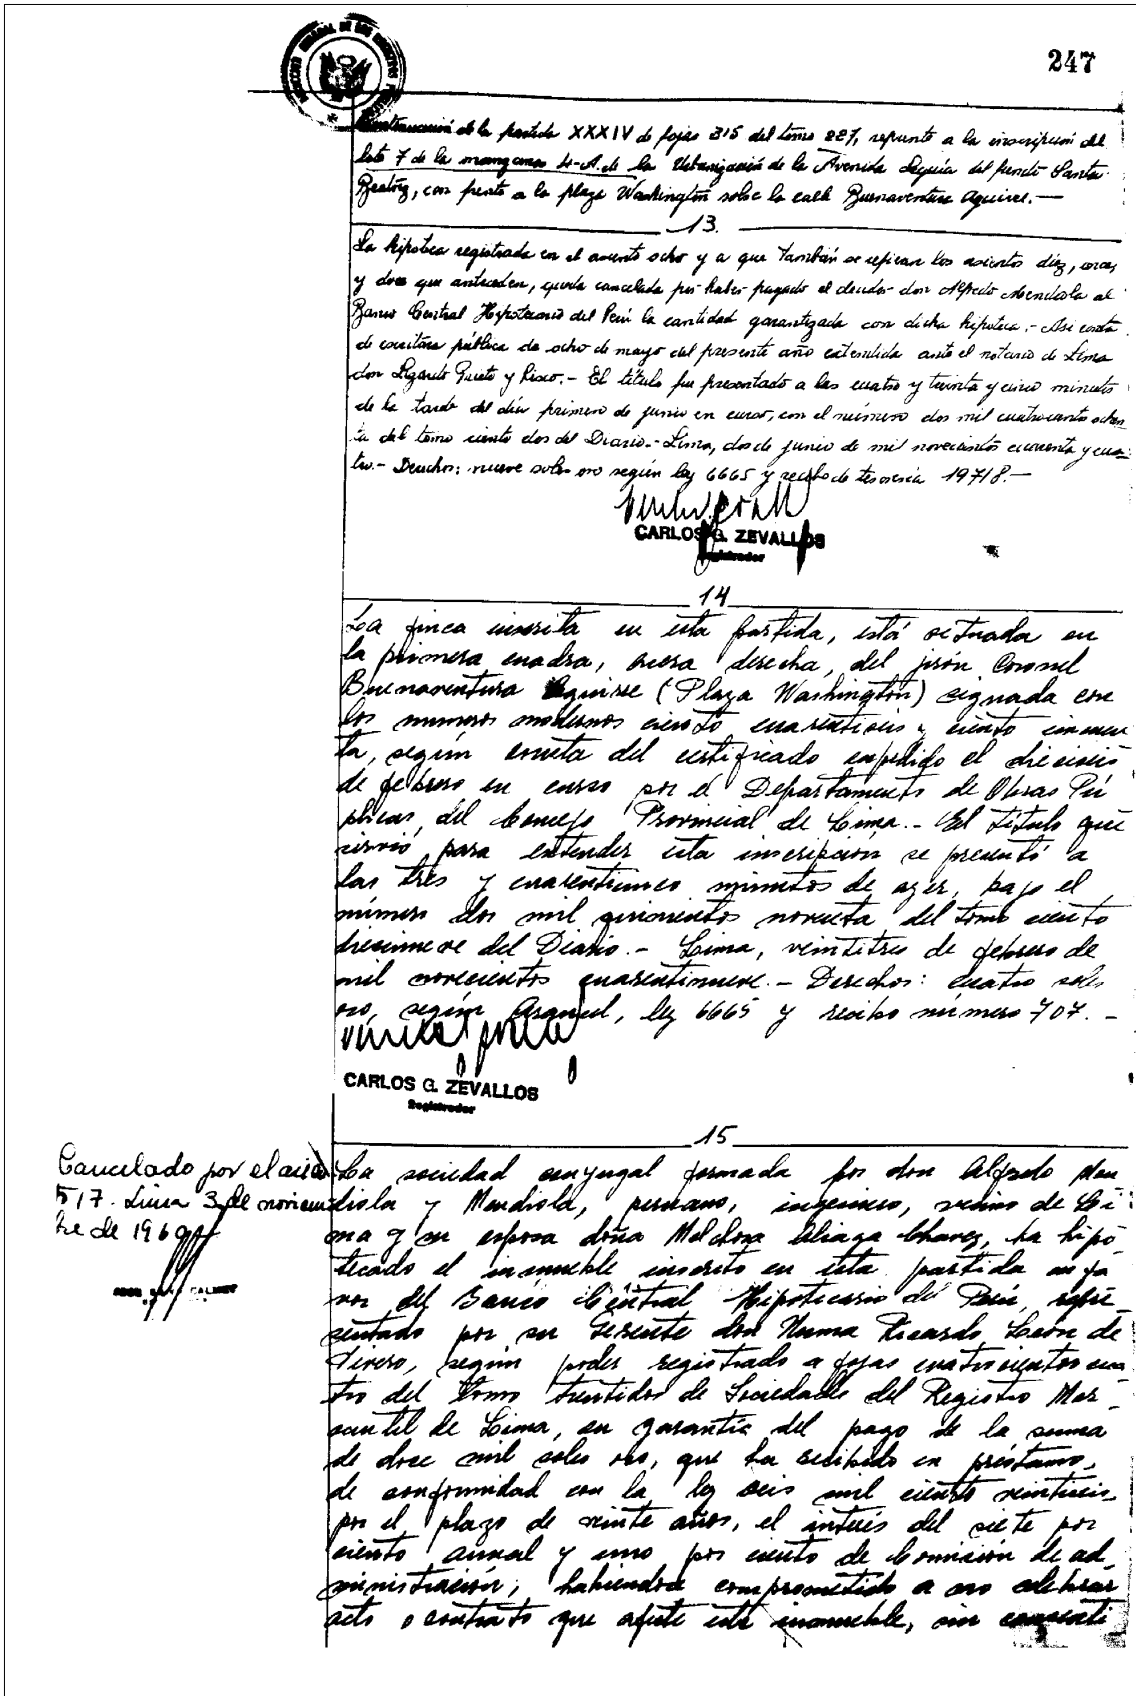 247
Continuación de la partida XXXIV de fojas 315 del tomo 227, referente a la inscripción del
lote 7 de la manzana 4-A. de la Urbanización de la Avenida Leguía del fundo Santa
Beatriz, con frente a la plaza Washington sobre la calle Buenaventura Aguirre.—
13.
La hipoteca registrada en el asiento ocho y a que también se refieren los asientos diez, once
y doce que anteceden, queda cancelada por haber pagado el deudor don Alfredo Mendiola al
Banco Central Hipotecario del Perú la cantidad garantizada con dicha hipoteca.- Así consta
de escritura pública de ocho de mayo del presente año extendida ante el notario de Lima
don Lizardo Prieto y Risco.- El título fue presentado a las cuatro y treinta y cinco minutos
de la tarde del día primero de junio en curso, con el número dos mil cuatrocientos ochen
ta del tomo ciento dos del Diario.- Lima, dos de junio de mil novecientos cuarenta y cua-
tro.- Derechos: nueve soles oro según ley 6665 y recibo de tesorería 19718.—
CARLOS G. ZEVALLOS
Registrador
14
La finca inscrita en esta partida, está situada en
la primera cuadra, acera derecha, del jirón Coronel
Buenaventura Aguirre (Plaza Washington) signada con
los numeros modernos ciento cuarentiseis y ciento cincuen
ta, según consta del certificado expedido el dieciseis
de febrero en curso por el Departamento de Obras Pú
blicas, del Concejo Provincial de Lima.- El título que
sirvió para extender esta inscripción se presentó a
las tres y cuarenticinco minutos de ayer, bajo el
número dos mil quinientos noventa del tomo ciento
diecinueve del Diario.- Lima, veintitres de febrero de
mil novecientos cuarentinueve.- Derechos: cuatro soles
oro, según Arancel, ley 6665 y recibo número 707.-
CARLOS G. ZEVALLOS
Registrador
15
Cancelado por el asiento
517. Lima 3 de noviem
bre de 1969
La sociedad conyugal formada por don Alfredo Men
diola y Mendiola, peruano, ingeniero, vecino de Li
ma y su esposa doña Melchora Aliaga Chavez, ha hipo
tecado el inmueble inscrito en esta partida en fa
vor del Banco Central Hipotecario del Perú, repre
sentado por su Gerente don Numa Ricardo León de
Vivero, según poder registrado a fojas cuatrocientos cua
tro del tomo treintidos de Sociedades del Registro Mer
cantil de Lima, en garantía del pago de la suma
de doce mil soles oro, que ha recibido en préstamo,
de conformidad con la ley seis mil ciento veintiseis
por el plazo de veinte años, el interés del siete por
ciento anual y uno por ciento de Comisión de ad
ministración; habiendose comprometido a no celebrar
acto o contrato que afecte este inmueble, sin consenti